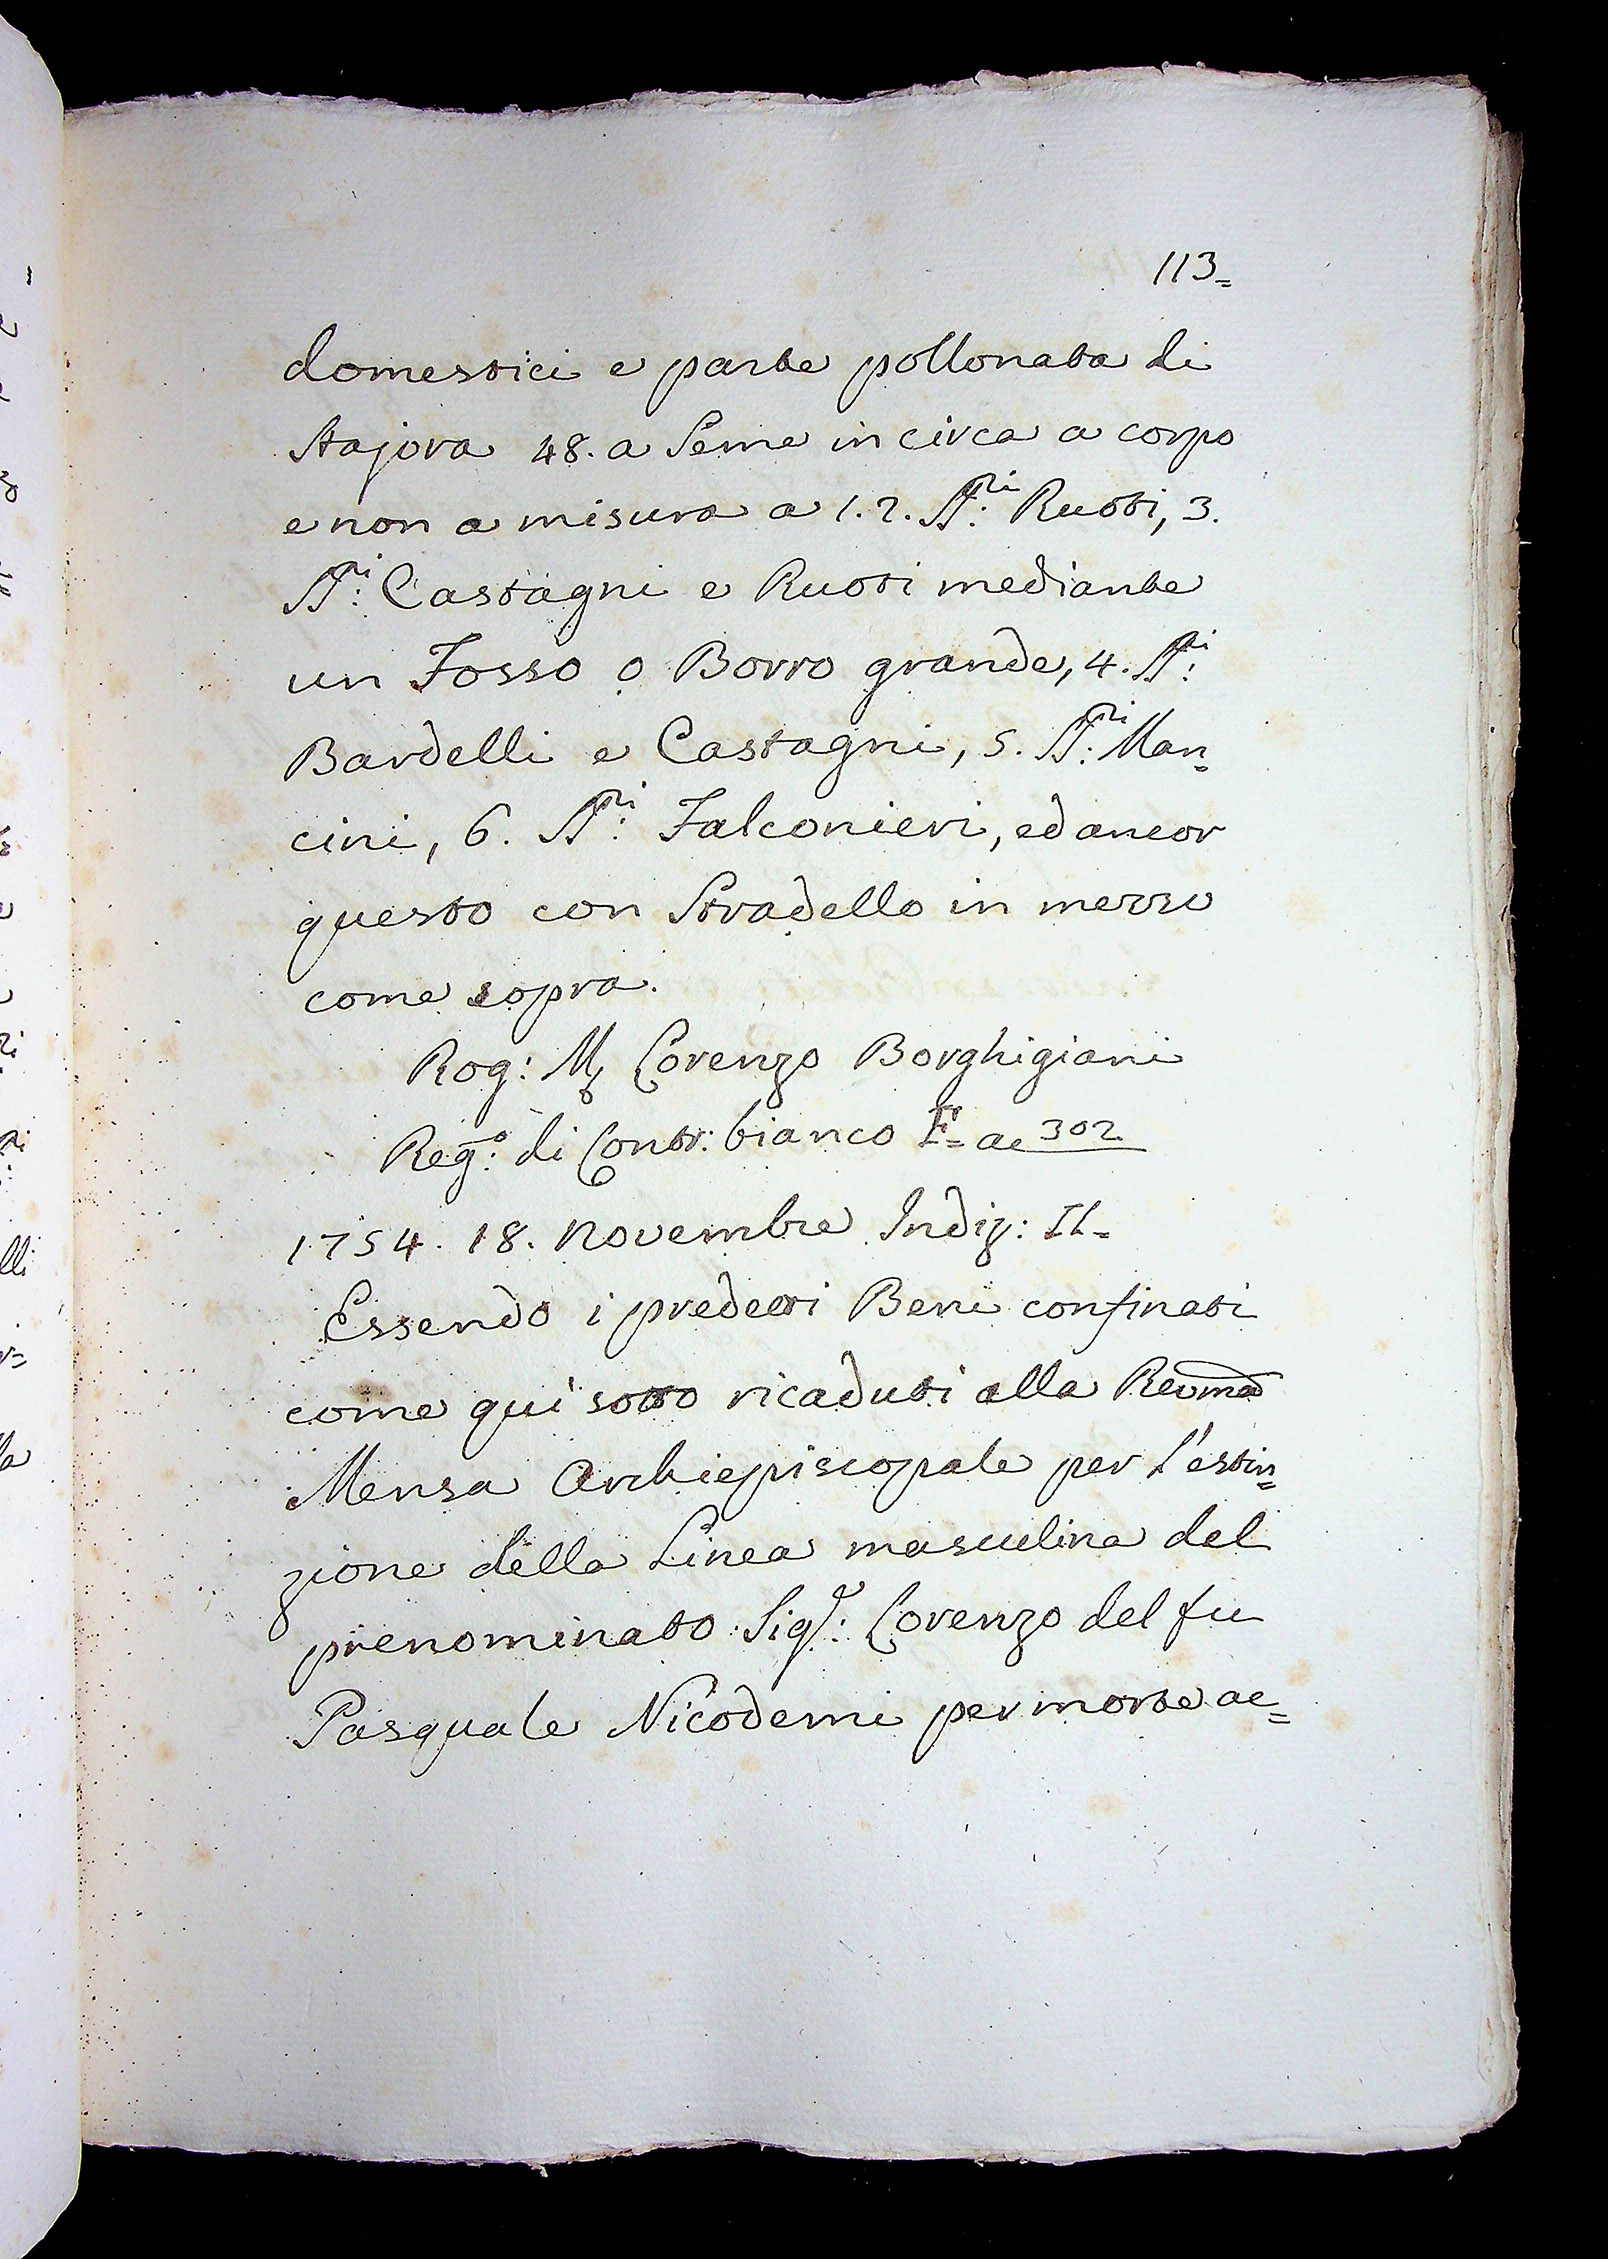 113=
domestici e parte pollonata di
Stajora 48. a Seme in circa a corpo
e non a misura a 1. 2. SS:ri Ruoti, 3.
SS:ri Castagni e Ruoti mediante
un Fosso o Borro grande, 4. SS:ri
Bardelli e Castagni, 5. SS:ri Man=
cini, 6. SS:ri Falconieri, ed ancor
questo con Stradello in mezzo
come sopra.
Rog: Mr Lorenzo Borghigiani
Reg:o di Contr: bianco F= ac 302
1754. 18. Novembre Indiz: II=
Essendo i predetti Beni confinati
come qui sotto ricaduti alla Reuma
Mensa Archiepiscopale per l'estin=
zione della Linea masculina del
prenominato Sigr: Lorenzo del fu
Pasquale Nicodemi per morte ac=